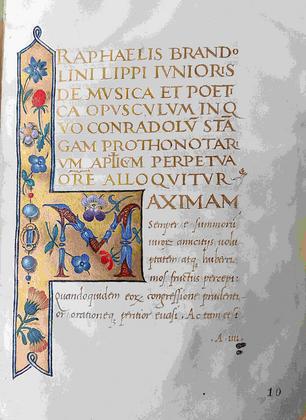 RAPHAELIS BRANDO
LINI LIPPI IVNIORIS
DE MVSICA ET POETI
CA OPVSCVLVM IN Q
VO CONRADOLṼ STÃ
GAM PROTHONOTARI
VM APLICM PERPETVA
ORE ALLOQVITVR
MAXIMAM
Semper e summorũ
amicitijs volu
ptatem atq
mos fructus percepi:
Quandoquidem eoꝝ congressione prudenti
or oratione q peritior euasi. Ac tum et i
A iiii
10